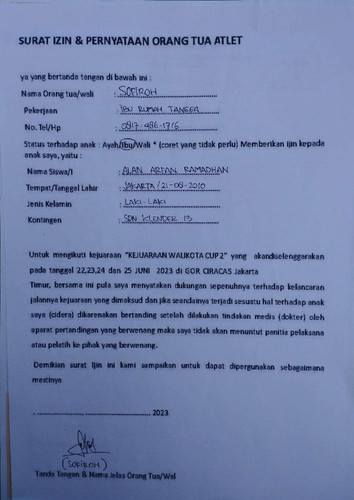 SURAT IZIN & PERNYATAAN ORANG TUA ATLET
ya yang bertanda tangan di bawah ini :
Nama Orang tua/wali : SOFIROH
Pekerjaan : IBU RUMAH TANGGA
No. Tel/Hp : 0817-486-1716
Status terhadap anak : Ayah/Ibu/Wali * (coret yang tidak perlu) Memberikan ijin kepada
anak saya, yaitu :
Nama Siswa/I : ALAN ARFAN RAMADHAN
Tempat/Tanggal Lahir : JAKARTA / 21-08-2010
Jenis Kelamin : LAKI-LAKI
Kontingen : SDN KLENDER 13
Untuk mengikuti kejuaraan "KEJUARAAN WALIKOTA CUP 2" yang akandiselenggarakan
pada tanggal 22,23,24 dan 25 JUNI 2023 di GOR CIRACAS Jakarta
Timur, bersama ini pula saya menyatakan dukungan sepenuhnya terhadap kelancaran
jalannya kejuaraan yang dimaksud dan jika seandainya terjadi sesuatu hal terhadap anak
saya (cidera) dikarenakan bertanding setelah dilakukan tindakan medis (dokter) oleh
aparat pertandingan yang berwenang maka saya tidak akan menuntut panitia pelaksana
atau pelatih ke pihak yang berwenang.
Demikian surat Ijin ini kami sampaikan untuk dapat dipergunakan sebagaimana
mestinya
.................................................. 2023
(SOFIROH)
Tanda Tangan & Nama Jelas Orang Tua/Wal